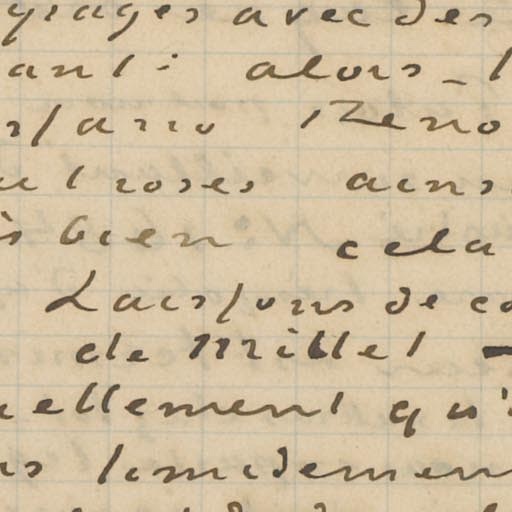 yages avec des
ant : alors - l
issarro Reno
et roses ains
is bien cela
Laissons de co
de Millet -
uellement qu'
us timidemen